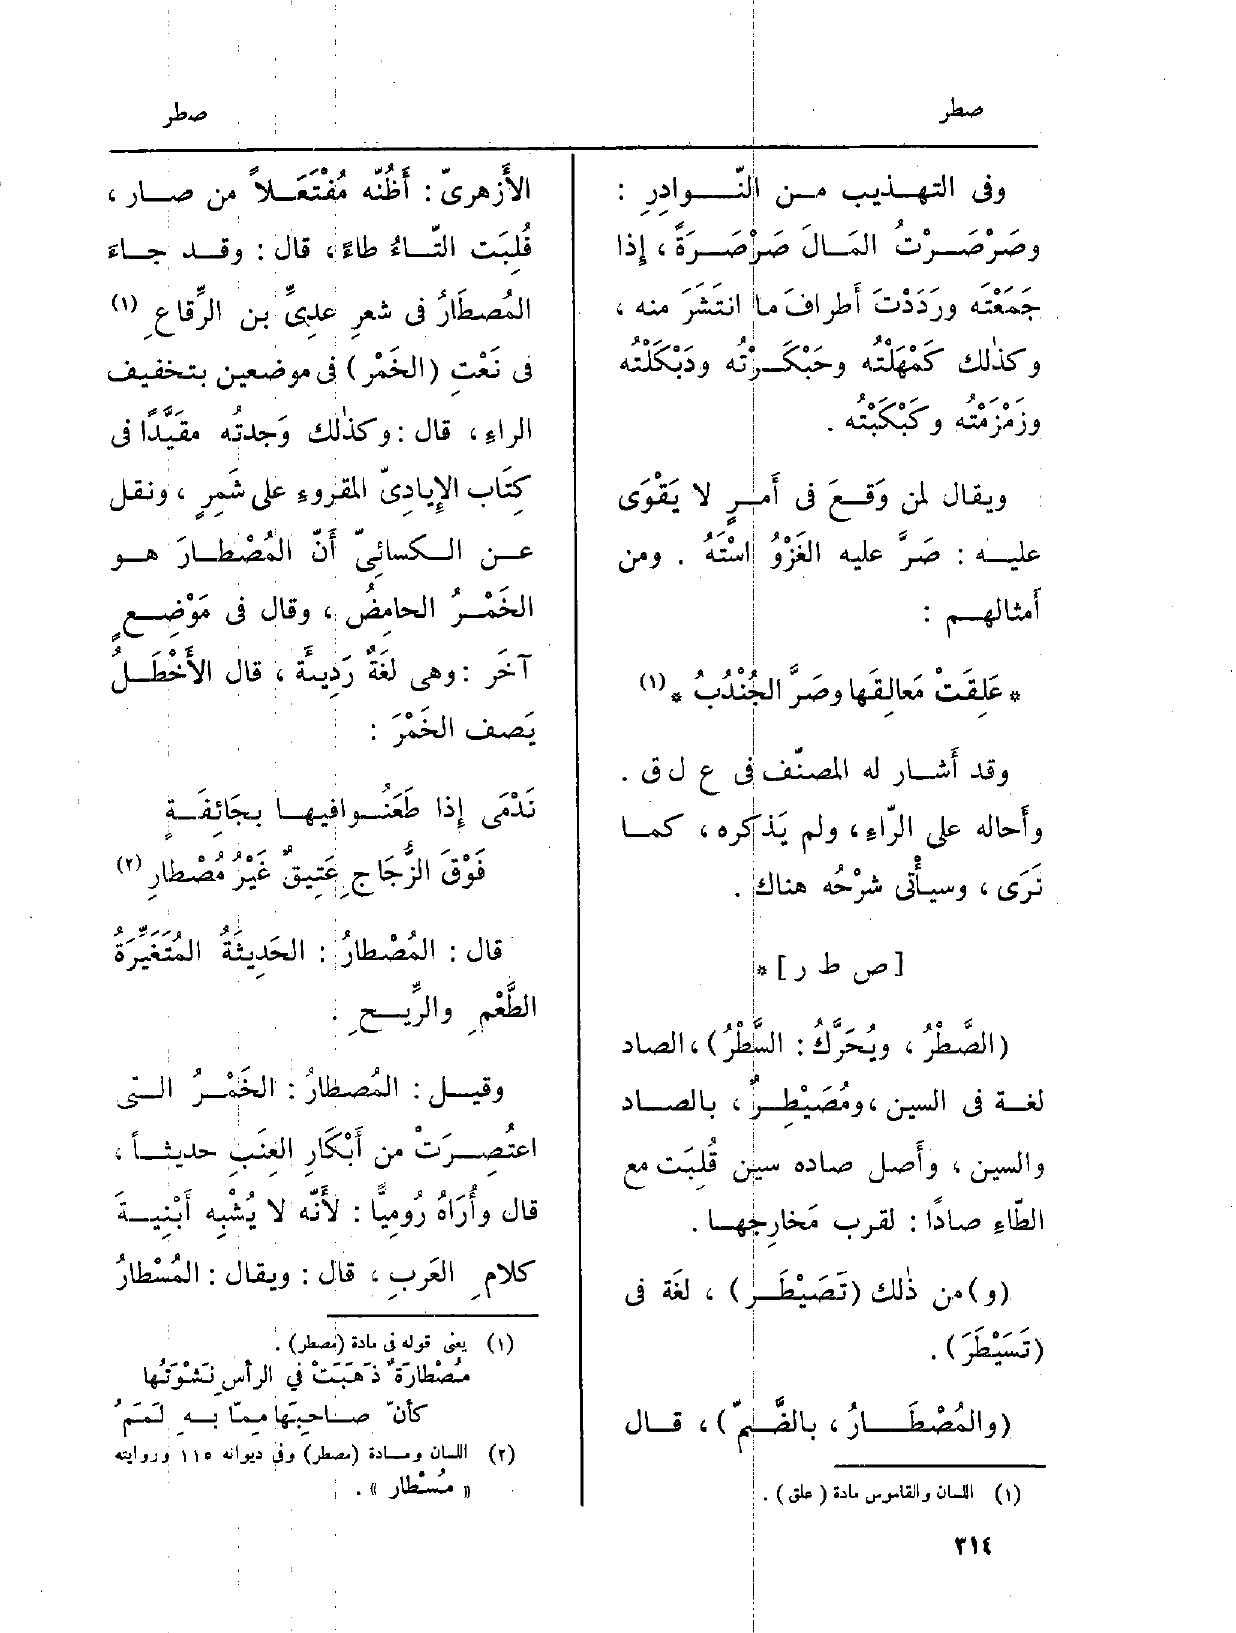 صطر
صطر
وفى التهـذيب مـن النّـوادرِ :
وصَرْصَـرْتُ المَـالَ صَرْصَـرَةً ، إذا
جَمَعْتَه ورَدَدْتَ أطرافَ ما انتَشَرَ منه ،
وكذٰلك كَمْهَلْتُه وحَبْكَـرْتُه ودَبْكَلْتُه
وزَمْزَمْتُه وكَبْكَبْتُه .
ويقال لمن وَقَـعَ فى أَمـرٍ لا يَقْوَى
عليـه : صَرَّ عليه الغَزْوُ اسْتَهُ . ومن
أمثالهـم :
* عَلِقَتْ مَعالِقَها وصَرَّ الجُنْدُبُ * (١)
وقد أَشـار له المصنّف فى ع ل ق .
وأَحاله على الرّاء، ولم يَذكره ، كمـا
تَرَى ، وسيأْتى شَرْحُه هناك .
[ ص ط ر ] *
(الصَّطْرُ ، ويُحَرَّكُ : السَّطْرُ) ، الصاد
لغـة فى السين ، ومُصَيْطِـرٌ ، بالصـاد
والسين ، وأَصـل صاده سين قُلِبَت مع
الطّاءِ صادًا : لقرب مَخارِجِهـا .
(و) من ذٰلك (تَصَيْطَـرَ) ، لغَة فى
(تَسَيْطَرَ) .
(والمُصْطَـارُ ، بالضَّمِّ) ، قـال
(١) اللسان والقاموس مادة ( علق ) .
الأَزهرىّ : أَظُنّه مُفْتَعَـلاً من صـار ،
قُلِبَت التّـاءُ طاءً ، قال : وقـد جـاءَ
المُصطَارُ فى شعرِ عدِىِّ بن الرِّقاعِ (١)
فى نَعْتِ (الخَمْر) فى موضعين بتخفيف
الراءِ ، قال : وكذٰلك وَجدتُه مقَيَّدًا فى
كِتَاب الإِيادِىّ المقروءِ على شَمِرٍ ، ونقل
عـن الـكسائىّ أَنّ المُصْطـارَ هـو
الخَمْـرُ الحامِضُ ، وقال فى مَوْضِـعٍ
آخَر : وهى لغَةٌ رَدِيئَة ، قال الأَخْطَـلُ
يَصِف الخَمْرَ :
نَدْمَى إِذا طَعَنُـوا فيهـا بـجَائفَـةٍ
فَوْقَ الزُّجَاجِ عَتِيقٌ غَيْرُ مُصْطارِ (٢)
قال : المُصْطارُ : الحَدِيثَةُ المُتَغَيِّرَةُ
الطَّعْمِ والرِّيـحِ .
وقيـل : المُصطارُ : الخَمْـرُ الـتى
اعتُصِـرَتْ من أَبْكَارِ العِنَبِ حديثـاً ،
قال وأُرَاهُ رُومِيًّا : لأَنّه لا يُشْبِه أَبْنِيـةَ
كلامِ العَربِ ، قال : ويقال : المُسْطارُ
(١) يعنى قوله فى مادة (مصطر) .
مُصْطارَةٌ ذَهَبَتْ في الرأسِ نَشْوَتُها
كأنّ صـاحِبَها مِمّا بـه لَمَمُ
(٢) اللسان ومـادة (مصطر) وفى ديوانه ١١٥ وروايته
« مُسْطار » .
٣١٤